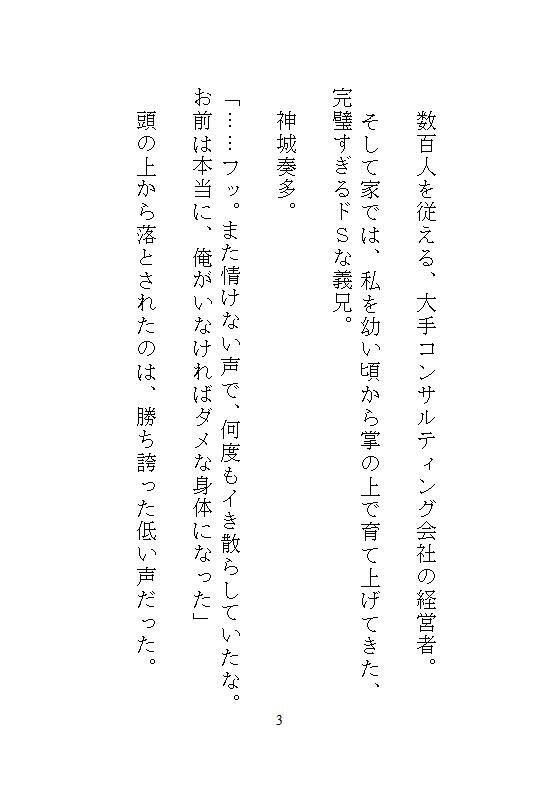 数百人を従える、大手コンサルティング会社の経営者。
そして家では、私を幼い頃から掌の上で育て上げてきた、
完璧すぎるドＳな義兄。
神城奏多。
「……フッ。また情けない声で、何度もイき散らしていたな。
お前は本当に、俺がいなければダメな身体になった」
頭の上から落とされたのは、勝ち誇った低い声だった。
3